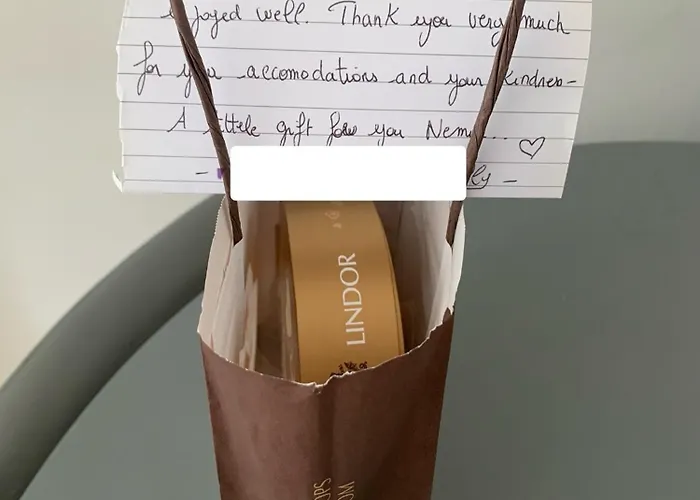 enjoyed well. Thank you very much
for your accomodations and your kindness-
A little gift for you Nem...♡
- ly -
LINDOR
OPS
OM